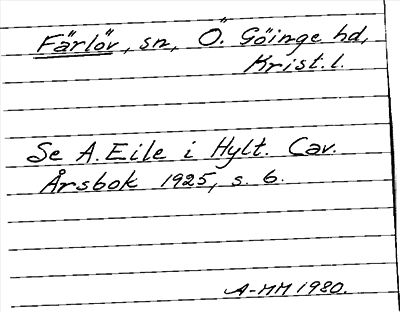 Färlöv, sn, Ö. Göinge hd,
Krist. l.
Se A. Eile i Hylt. Cav.
Årsbok 1925, s. 6.
A-MM 1980.